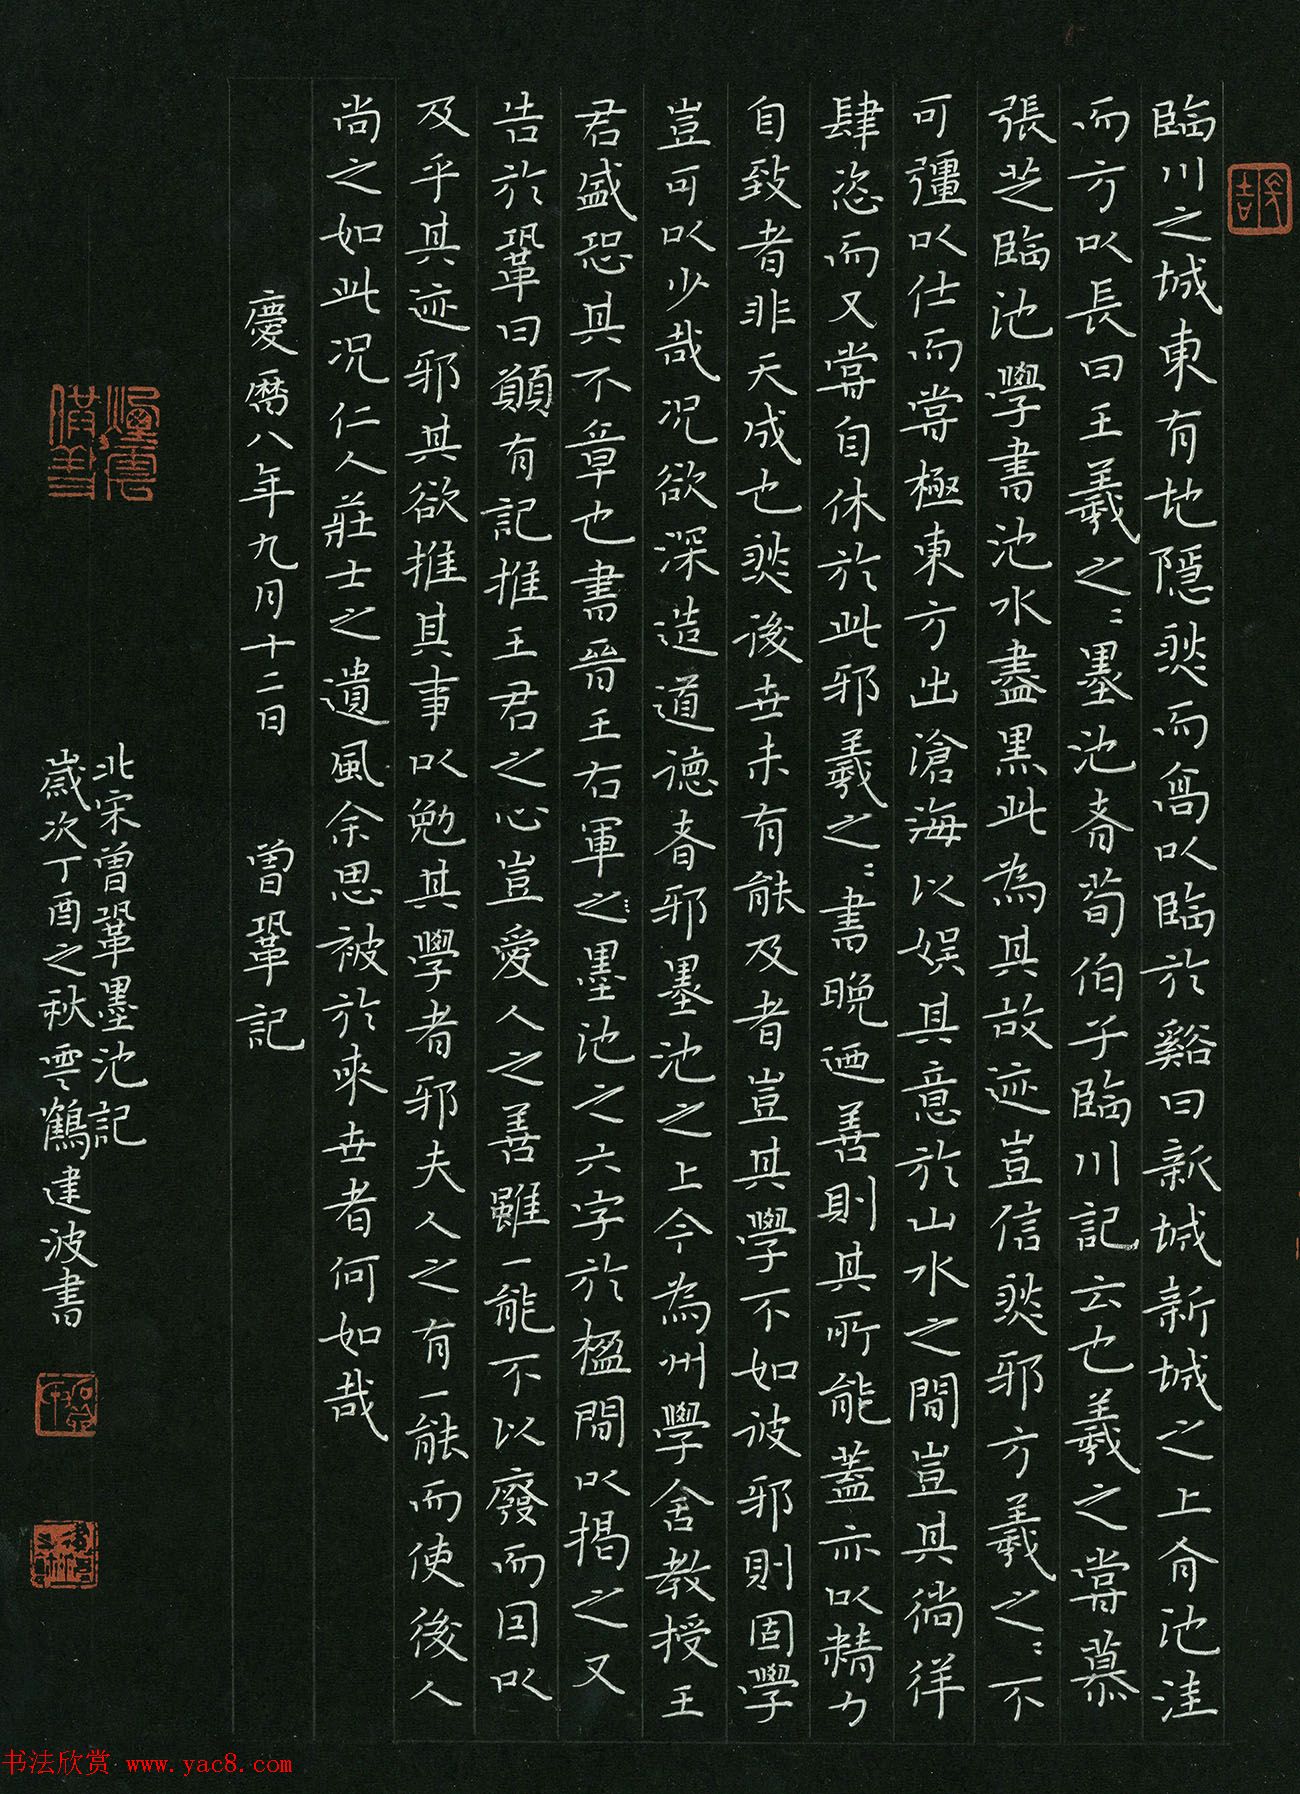 臨川之城東有地隱然而高以臨於谿曰新城新城之上有池洼
而方以長曰王羲之〻墨池者荀伯子臨川記云也羲之嘗慕
張芝臨池學書池水盡黑此為其故迹豈信然邪方羲之〻不
可彊以仕而嘗極東方出滄海以娛其意於山水之間豈其徜徉
肆恣而又嘗自休於此邪羲之〻書晚迺善則其所能蓋亦以精力
自致者非天成也然後世未有能及者豈其學不如彼邪則固學
豈可以少哉况欲深造道德者邪墨池之上今為州學舍教授王
君盛恐其不章也書晉王右軍之墨池之六字於楹間以揭之又
告於鞏曰願有記推王君之心豈愛人之善雖一能不以廢而因以
及乎其迹邪其欲推其事以勉其學者邪夫人之有一能而使後人
尚之如此况仁人莊士之遺風余思被於來世者何如哉
慶曆八年九月十二日 曾鞏記
北宋曾鞏墨池記
歲次丁酉之秋雲鶴建波書
书法欣赏 www.yac8.com